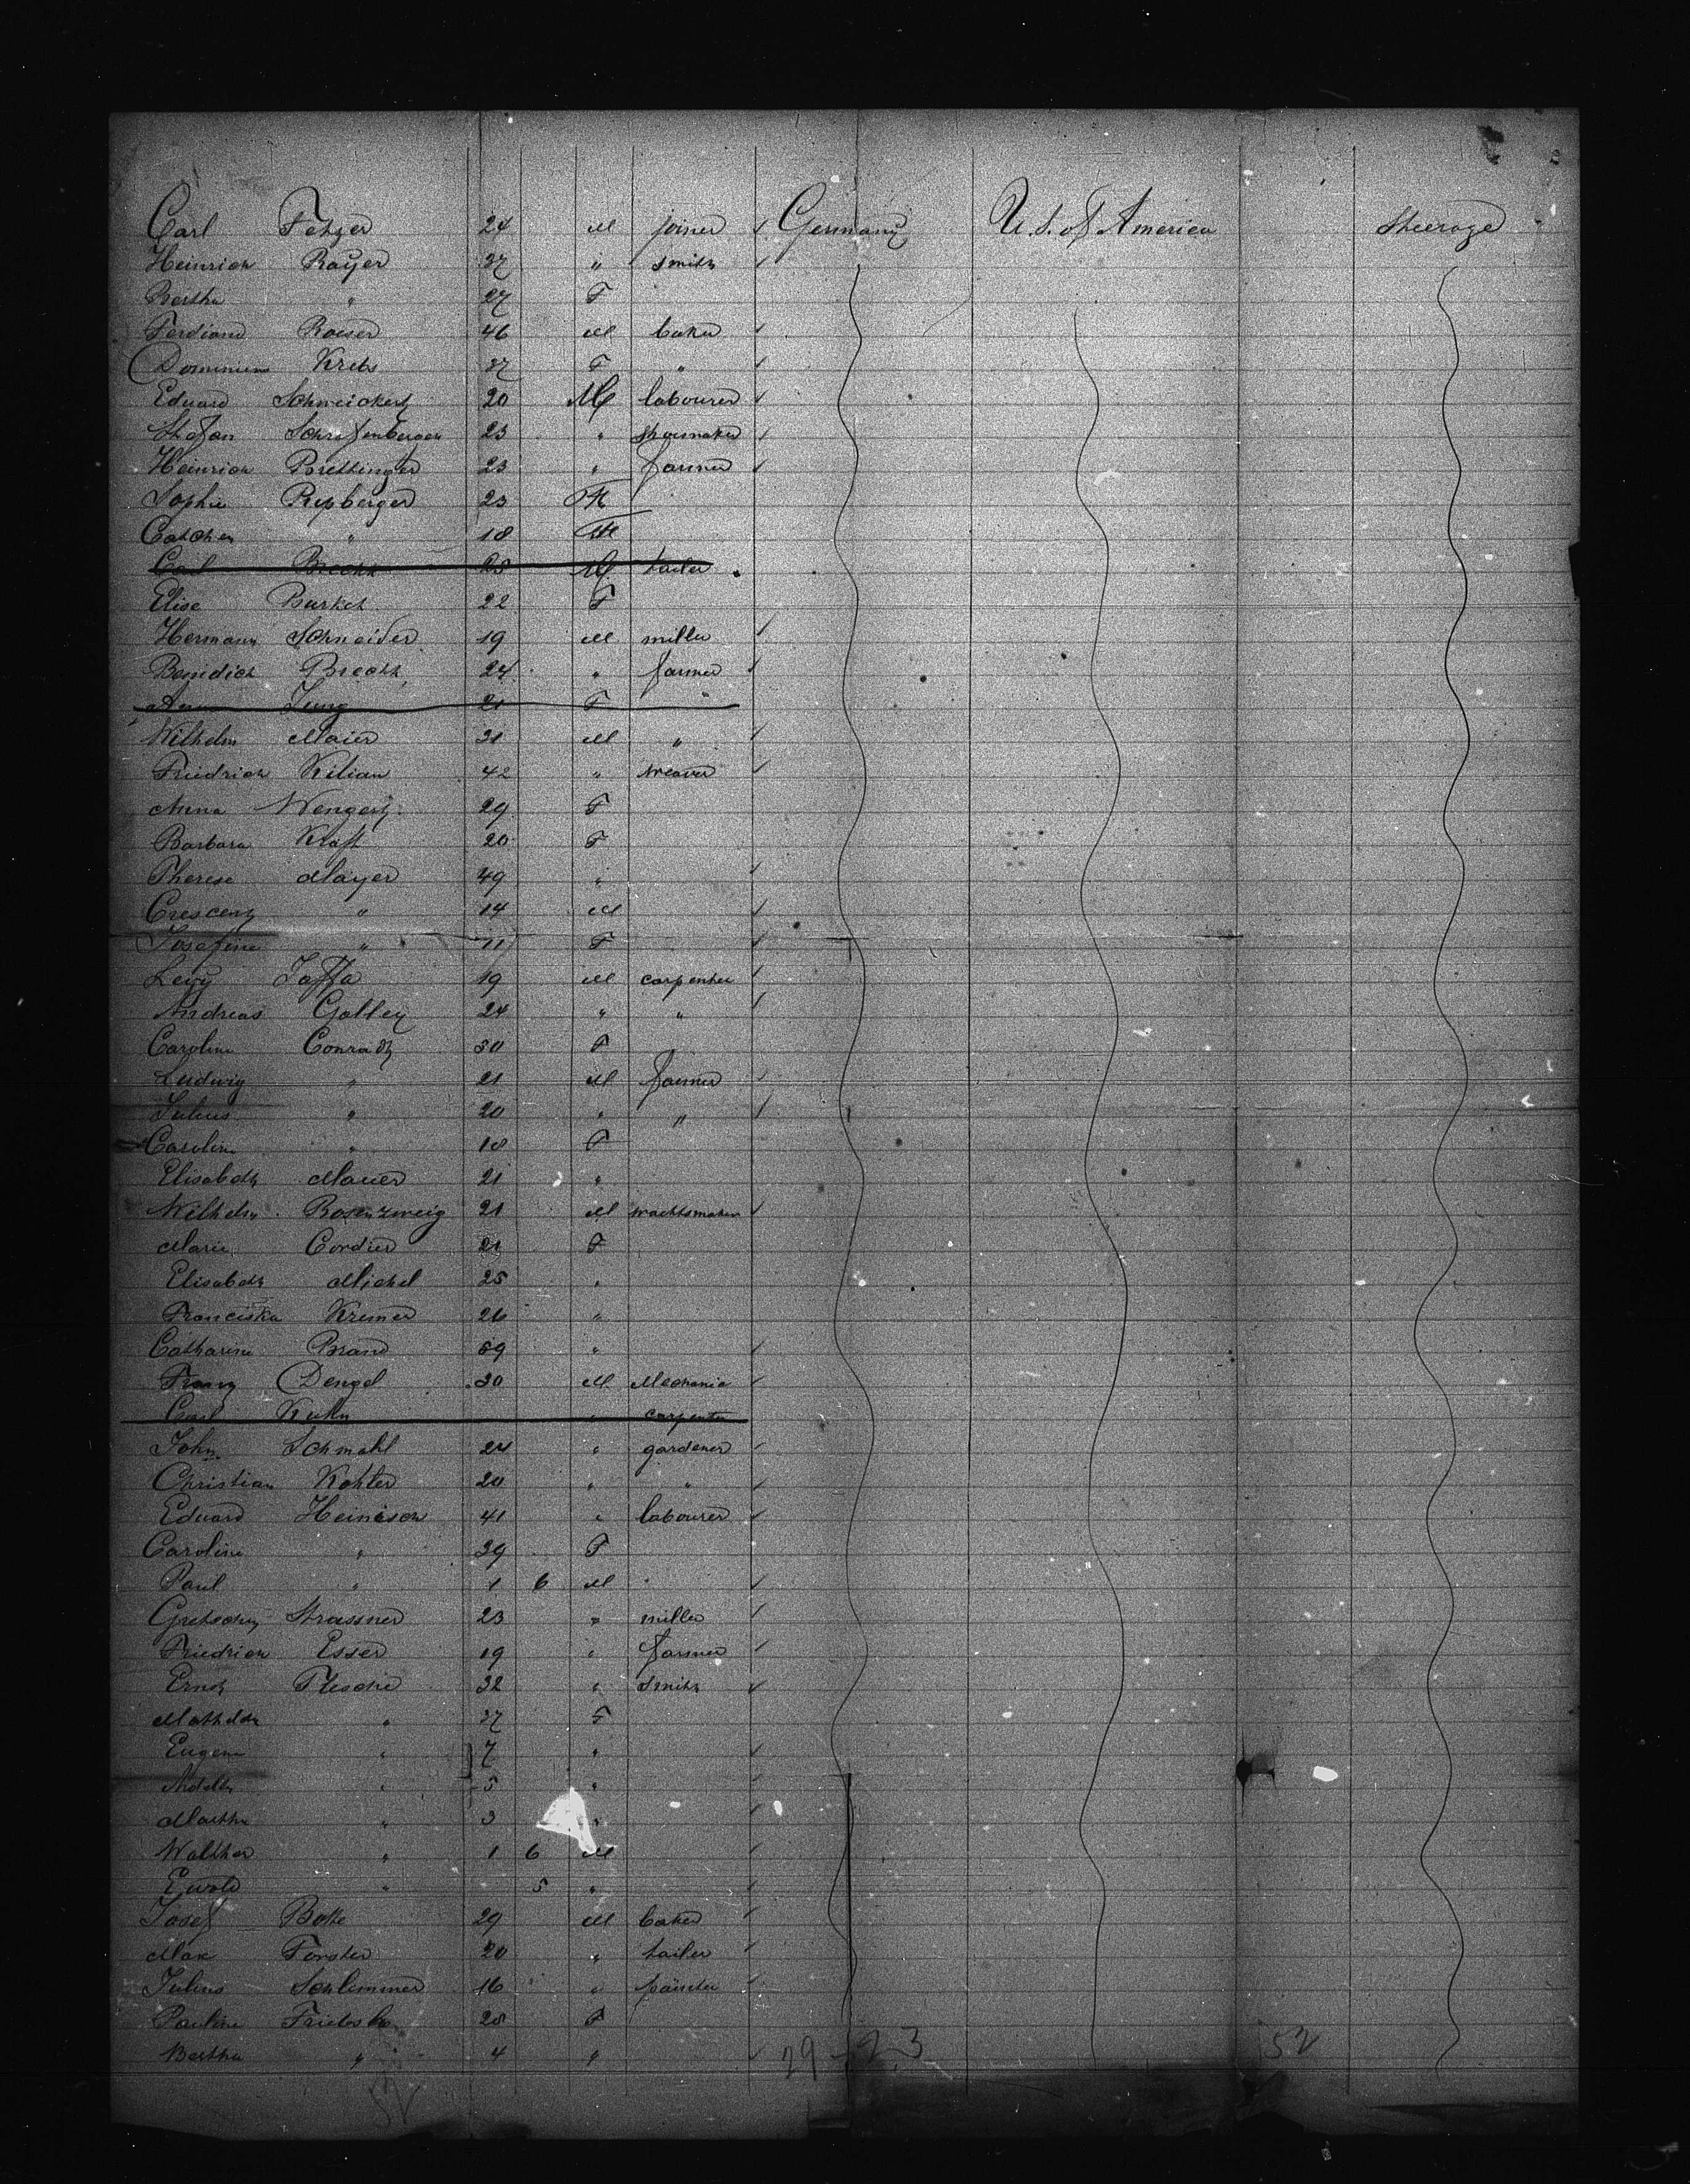 Carl Fetzer 24 M joiner ✓ Germany U.S. of America Steerage
Heinrich Rayer 37 " smith ✓
Bertha " 27 F
Ferdiand Roeser 46 M baker ✓
Krebs 37 F " ✓
Eduard Schweickert 20 M labourer ✓
Stefan 23 " shoemaker ✓
Heinrich Brettinger 23 " farmer ✓
Sophie Repberger 23
" 18
Carl Brecht 28 M tailer
Elise Burket 22 F
Hermann Schneider 19 M miller ✓
Benedict Brecht 24 " farmer ✓
Jung 21 F "
Wilhelm Maier 31 M " ✓
Friedrich Kilian 42 " weaver ✓
Anna 29 F
Barbara Kraft 20 F
Therese Mayer 49 " ✓
Crescenz " 14 M ✓
Josefine " 11 F ✓
Levy Jaffa 19 M carpenter ✓
Andreas Golley 24 " " ✓
Caroline 30 F
Ludwig " 21 M farmer ✓
Julius " 20 " " ✓
Caroline " 18 F
Elisabeth Mauer 21 "
Wilhelm Rosenzweig 21 M ✓
Marie Cordier 21 F
Elisabeth Michel 25 "
Franciska Kremer 26 "
Catharine Brand 59 " ✓
Franz Dengel 30 M Mechanic ✓
Carl Kuhn " carpenter
John Schmahl 24 " gardener ✓
Christian Kohler 20 " " ✓
Eduard Heinisch 41 " labourer ✓
Caroline " 39 F
Paul " 1 6 M ✓
Strassner 23 " miller ✓
Friedrich Esser 19 " farmer ✓
Ernst 32 " smith ✓
" 37 F
Eugene " 7 " ✓
" 5 " ✓
Martha " 3 " ✓
Walther " 1 6 M ✓
Ewald " 5 " ✓
Josef 29 M baker ✓
Max Forster 20 " tailer ✓
Julius Schlimmer 16 " ✓
Pauline 28 F
Bertha " 4 " ✓ 29 - 23 52
52